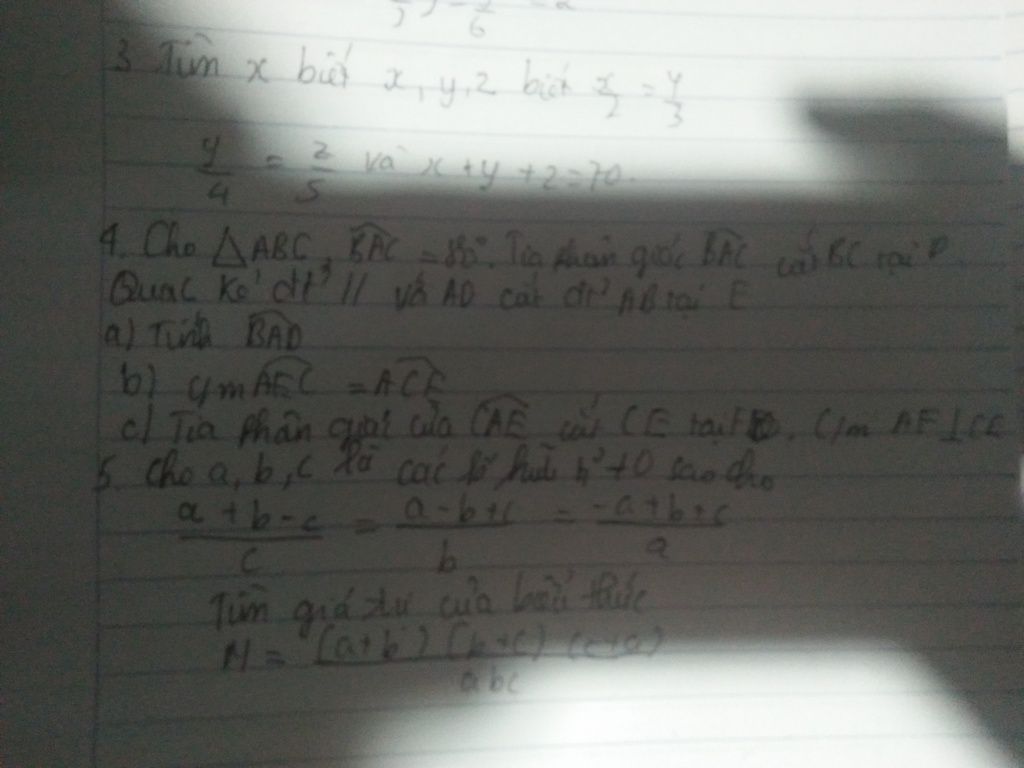 3 Tìm x biết x, y, z biết x/2 = y/3
y/4 = z/5 và x + y + z = 70.
4. Cho △ABC, BAC = 80°. Tia phân giác BAC cắt BC tại D
Qua C kẻ đt³ // với AD cắt đt³ AB tại E
a) Tính BAD
b) C/m AEC = ACE
c) Tia phân giác của CAE cắt CE tại F. C/m AF ⊥ CE
5. Cho a, b, c là các số hữu tỉ ≠ 0 sao cho
a + b - c / c = a - b + c / b = -a + b + c / a
Tìm giá trị của biểu thức
M = (a + b) (b + c) (c + a) / abc